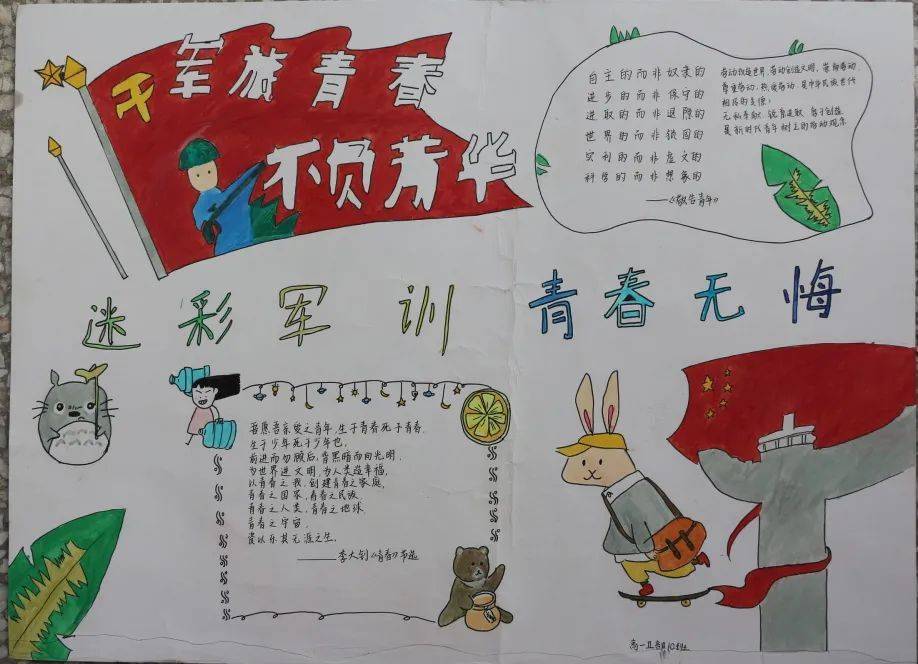 军旅青春
不负芳华
自主的而非奴隶的
进步的而非保守的
进取的而非退隐的
世界的而非锁国的
实利的而非虚文的
科学的而非想象的
——《敬告青年》
劳动创造世界,劳动创造文明,
尊重劳动,热爱劳动 是中华民族世代
相
无私奉献 锐意进取 勇于创造
是新时代青年树立的劳动观念
迷彩军训 青春无悔
吾愿吾亲爱之青年,生于青春死于青春,
生于少年死于少年也,
前进而勿顾后,背黑暗而向光明,
为世界进文明,为人类造幸福,
以青春之我,创建青春之家庭,
青春之国家,青春之民族,
青春之人类,青春之地球,
青春之宇宙,
资以乐其无涯之生。
——李大钊《青春》节选
高一 10班